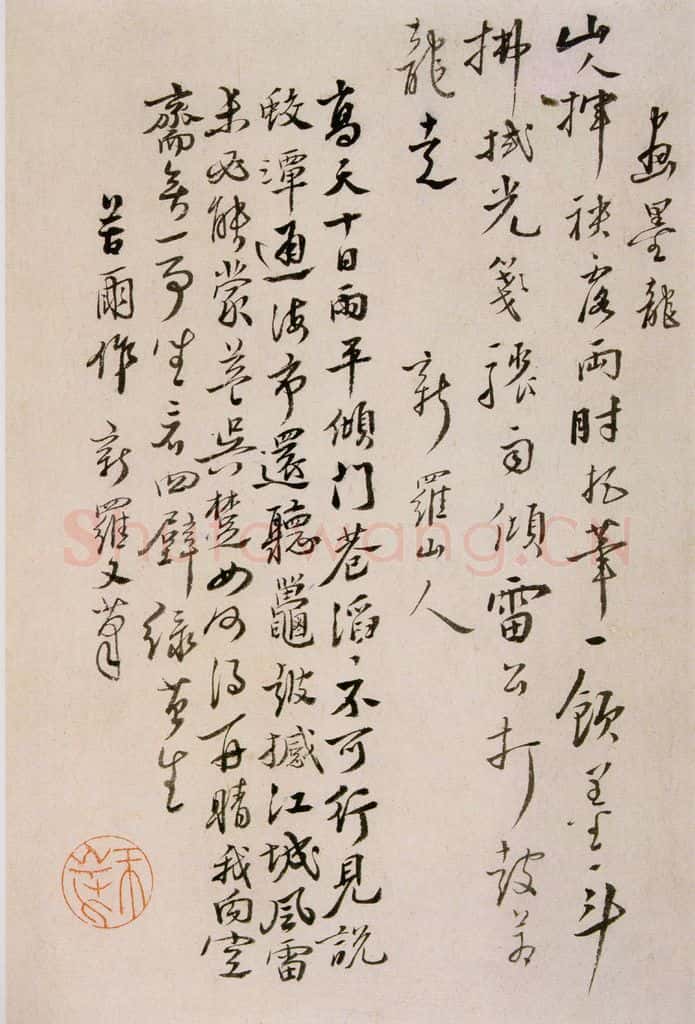 畫墨龍
山人揮袂露兩肘把筆一飲墨一斗
拂拭光箋驟雨傾雷公打鼓蒼
龍走 新羅山人
高天十日雨平傾門巷滔〻不可行見說
蛟潭通海市還聽鼉鼓撼江城風雷
未必能蒙蓋吳楚如何得再晴我向空
齋無一事坐看四壁綠苔生
苦雨作 新羅又筆
Shufawang.CN